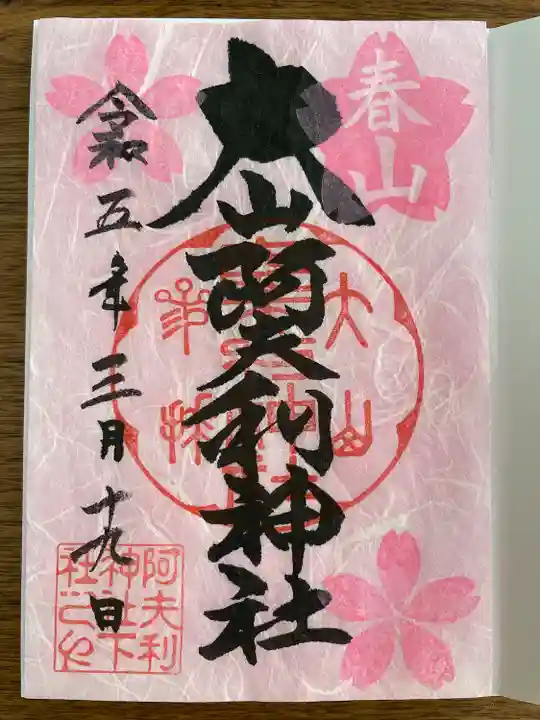 春山
大山阿夫利神社
令和五年三月十九日
大山
阿夫利
神社下
社之也